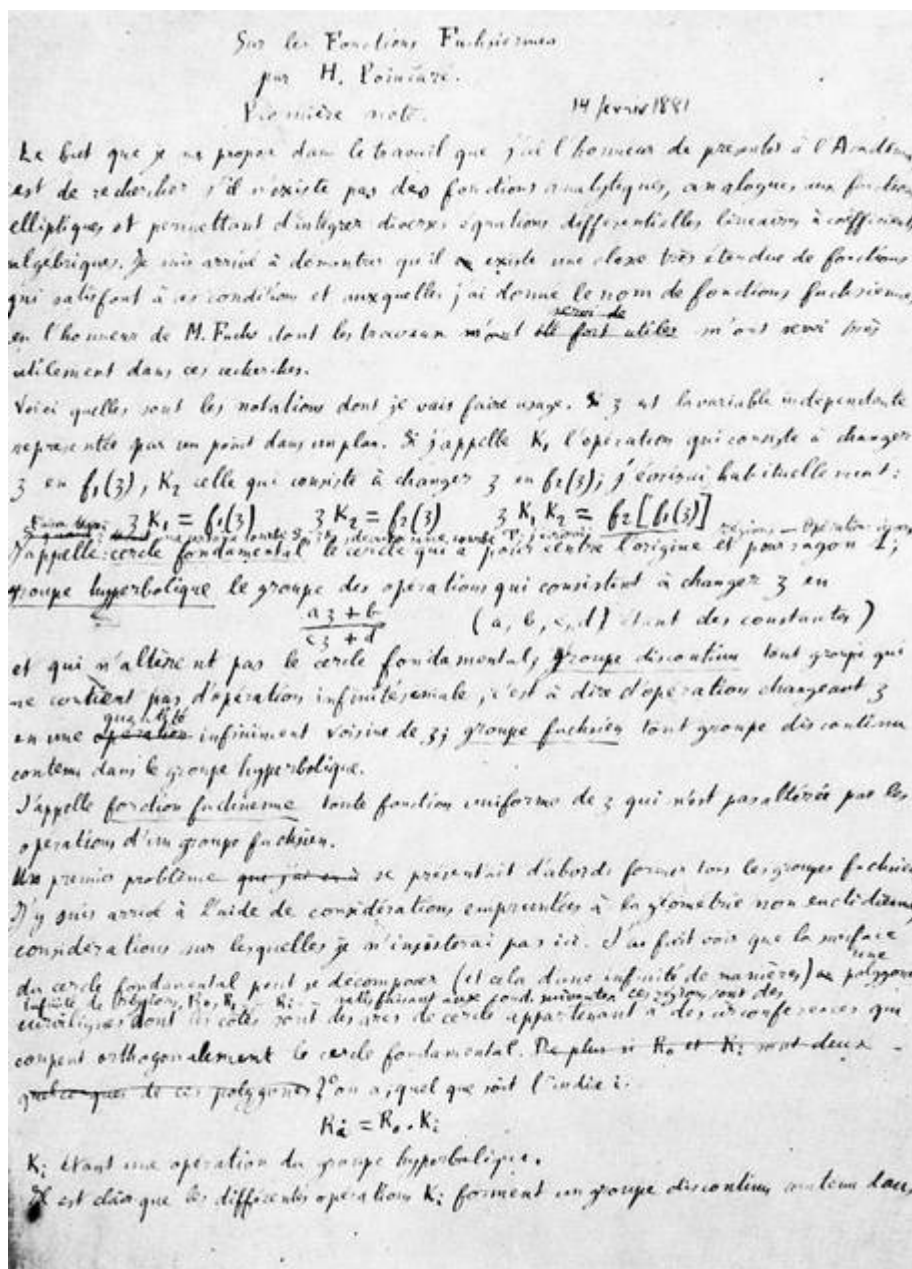 Sur les Fonctions Fuchsiennes
par H. Poincaré.
Première note.
14 fevrier 1881
Le but que je me propose dans le travail que j'ai l'honneur de presenter à l'Académie
est de rechercher s'il n'existe pas des fonctions analytiques, analogues aux fonctions
elliptiques et permettant d'intégrer diverses équations différentielles linéaires à coefficients
algébriques. Je suis arrivé à démontrer qu'il existe une classe très étendue de fonctions
qui satisfont à ces conditions et auxquelles j'ai donné le nom de fonctions fuchsiennes
en l'honneur de M. Fuchs dont les travaux m'ont été fort utiles m'ont servi très
utilement dans ces recherches.
Voici quelles sont les notations dont je vais faire usage. Si z est la variable indépendante
representée par un point dans un plan. Si j'appelle K₁ l'opération qui consiste à changer
z en f₁(z), K₂ celle qui consiste à changer z en f₂(z); j'écrirai habituellement:
z K₁ = f₁(z) z K₂ = f₂(z) z K₁ K₂ = f₂[f₁(z)]
J'appelle cercle fondamental le cercle qui a pour centre l'origine et pour rayon 1;
groupe hyperbolique le groupe des opérations qui consistent à changer z en
az + b
cz + d
(a, b, c, d) étant des constantes)
et qui n'altèrent pas le cercle fondamental; groupe discontinu tout groupe qui
ne contient pas d'opération infinitésimale, c'est à dire d'opération changeant z
quantité
en une opération infiniment voisine de z; groupe fuchsien tout groupe discontinu
contenu dans le groupe hyperbolique.
J'appelle fonction fuchsienne toute fonction uniforme de z qui n'est pas altérée par les
operations d'un groupe fuchsien.
Un premier problème se présentait d'abord: former tous les groupes fuchsiens
J'y suis arrivé à l'aide de considérations empruntées à la géométrie non euclidienne,
considérations sur lesquelles je n'insisterai pas ici. J'ai fait voir que la surface
une
du cercle fondamental peut se décomposer (et cela d'une infinité de manières) en polygones
infinité de régions, R₀, R₁ Rᵢ satisfaisant aux cond. suivantes ces régions sont des
curvilignes dont les côtés sont des arcs de cercle appartenant à des circonférences qui
coupent orthogonalement le cercle fondamental. De plus si R₀ et Rᵢ sont deux
quelconques de ces polygones l'on a, quel que soit l'indice i:
Rᵢ = R₀.Kᵢ
Kᵢ étant une opération du groupe hyperbolique.
Il est clair que les différentes opérations Kᵢ forment un groupe discontinu contenu dans